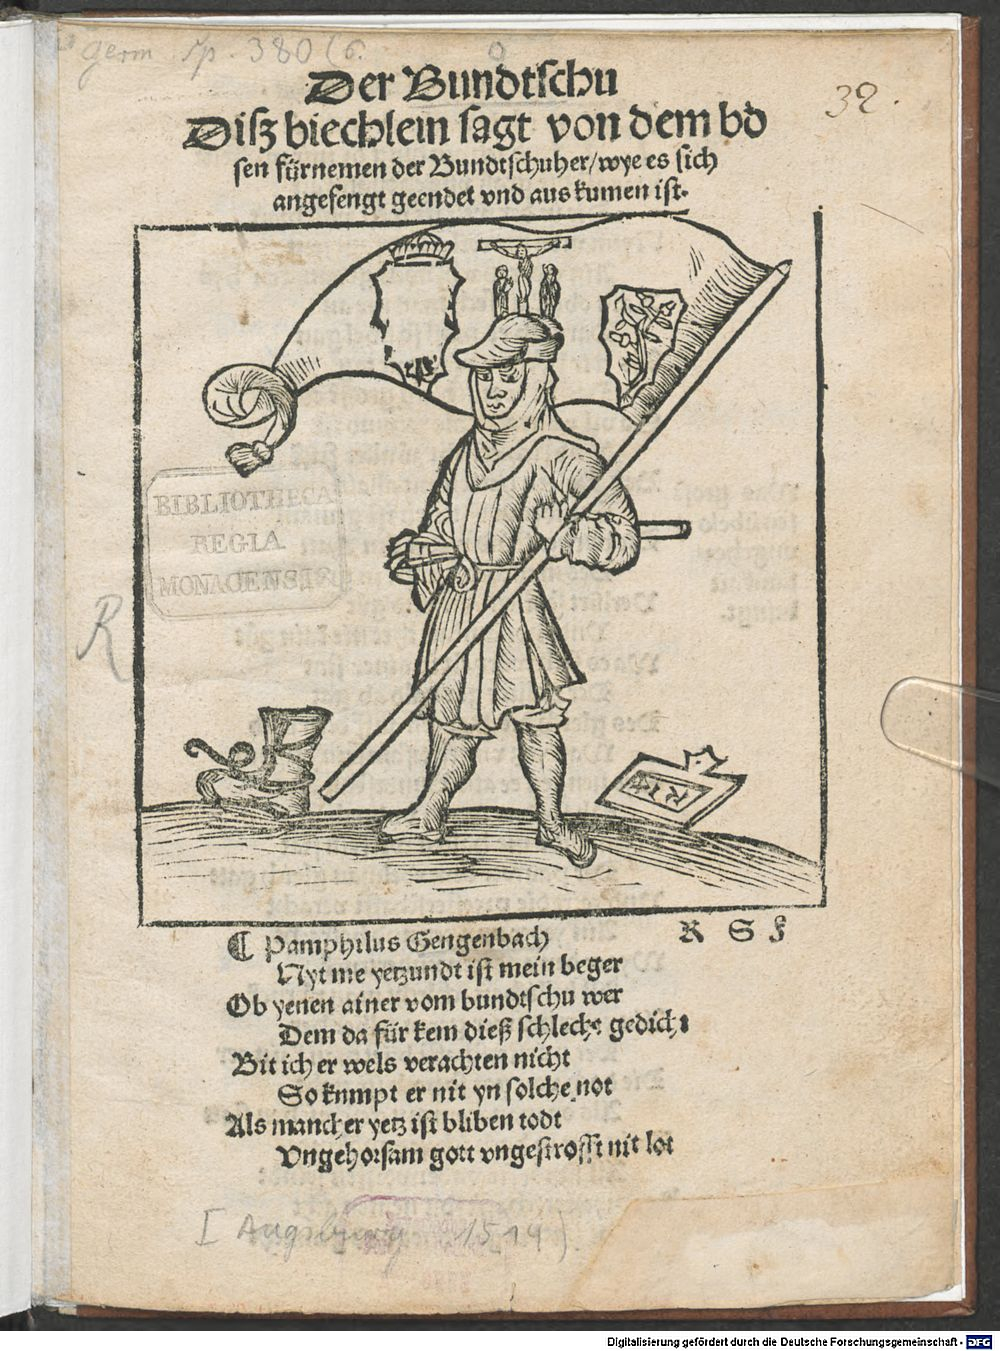 germ. sp. 380 (6.
32.
Der Bundtschu
Disz biechlein sagt von dem bo
sen fürnemen der Bundtschuher/ wye es sich
angefengt geendet vnd aus kumen ist.
BIBLIOTHECA
REGIA
MONACENSIS
R
R S F
Pamphilus Gengenbach
Nyt me yetzundt ist mein beger
Ob yenen ainer vom bundtschu wer
Dem da für kem dieß schlecht gedicht
Bit ich er wels verachten nicht
So kumpt er nit yn solche not
Als mancher yetz ist bliben todt
Vngehorsam gott vngestrofft nit lot
[Augsburg 1514].
Digitalisierung gefördert durch die Deutsche Forschungsgemeinschaft - DFG